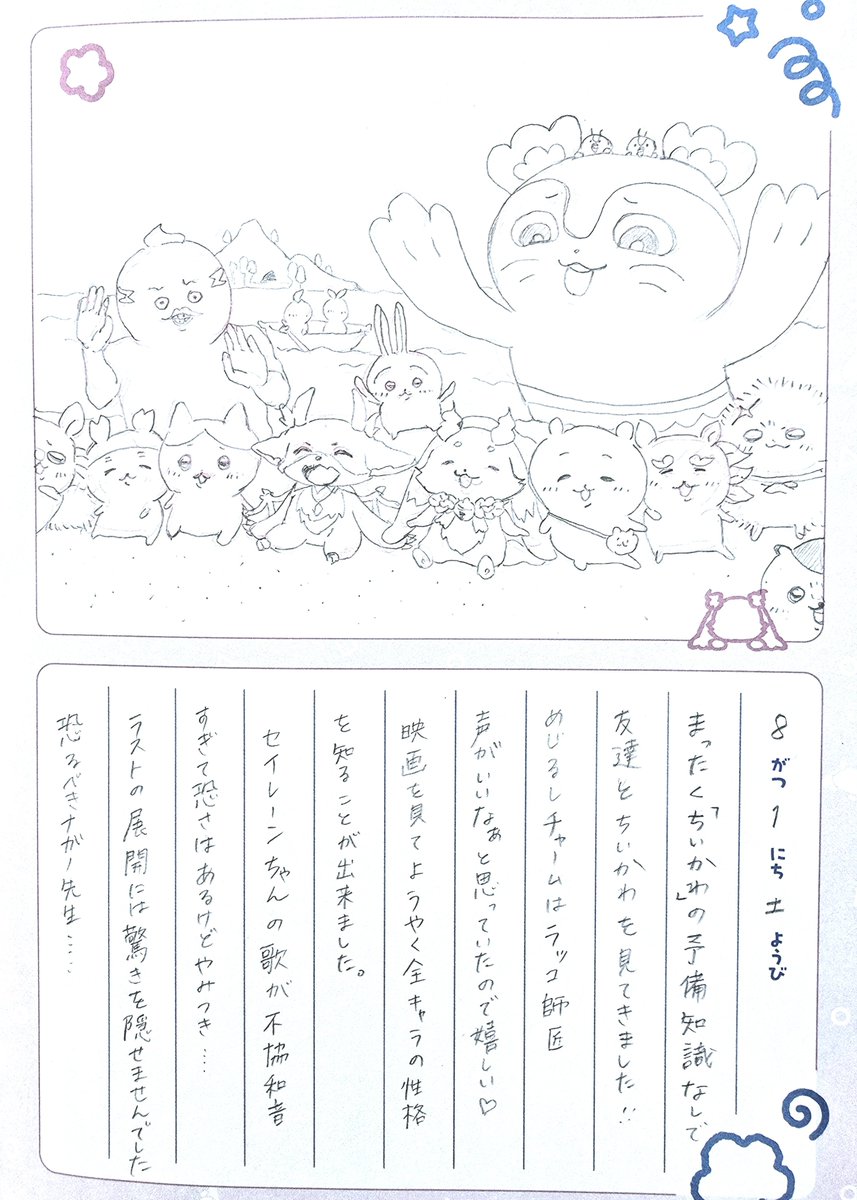 8がつ1にち土ようび
まったく「ちいかわ」の予備知識なしで
友達とちいかわを見てきました!!
めじるしチャームはラッコ師匠
声がいいなぁと思っていたので嬉しい♡
映画を見てようやく全キャラの性格
を知ることが出来ました。
セイレーンちゃんの歌が不協和音
すぎて恐さはあるけどやみつき….
ラストの展開には驚きを隠せませんでした
恐るべきナガノ先生…..